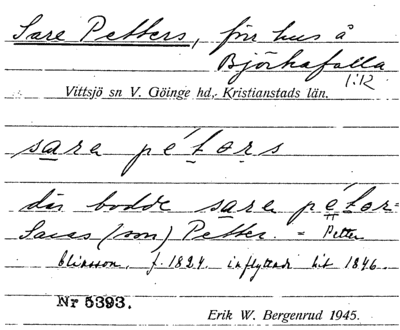 Sare Petters, förr hus å
Björkafalla
1:12
Vittsjö sn V. Göinge hd., Kristianstads län.
sara péters
där bodde sara péter=
Saras (son) Petter. = Petter
Eliasson, f. 1824. inflyttade hit 1846.
Nr 5393.
Erik W. Bergenrud 1945.